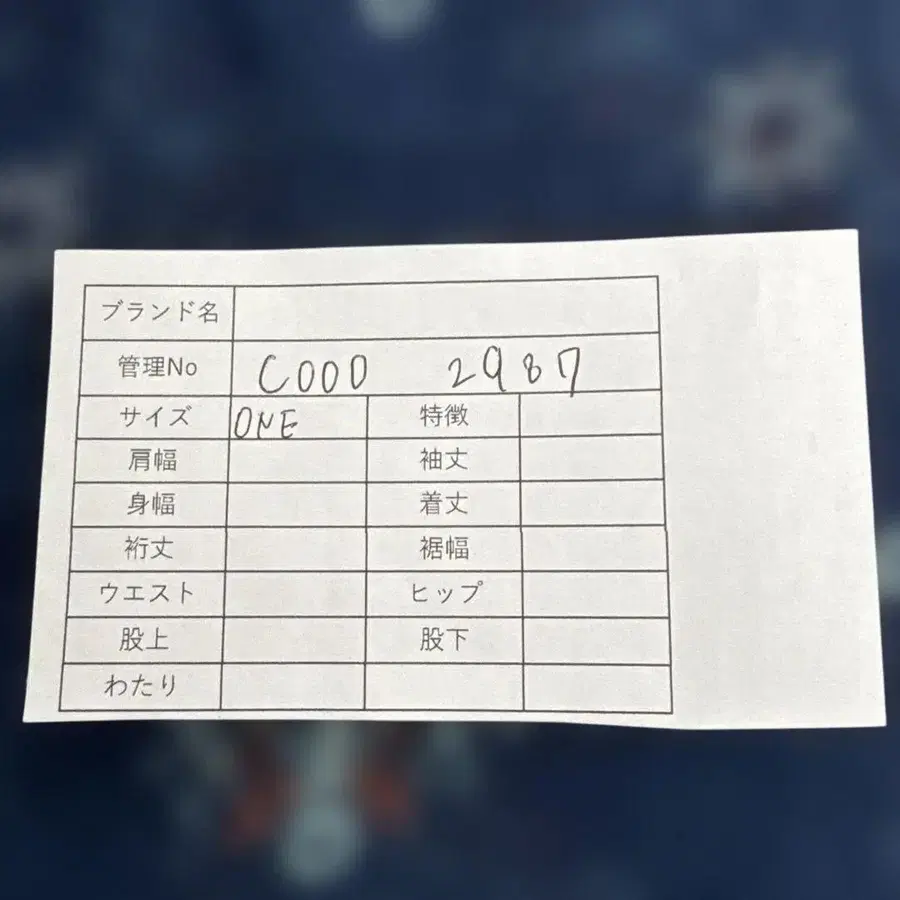 ブランド名
管理No C000 2987
サイズ ONE 特徴
肩幅 袖丈
身幅 着丈
裄丈 裾幅
ウエスト ヒップ
股上 股下
わたり